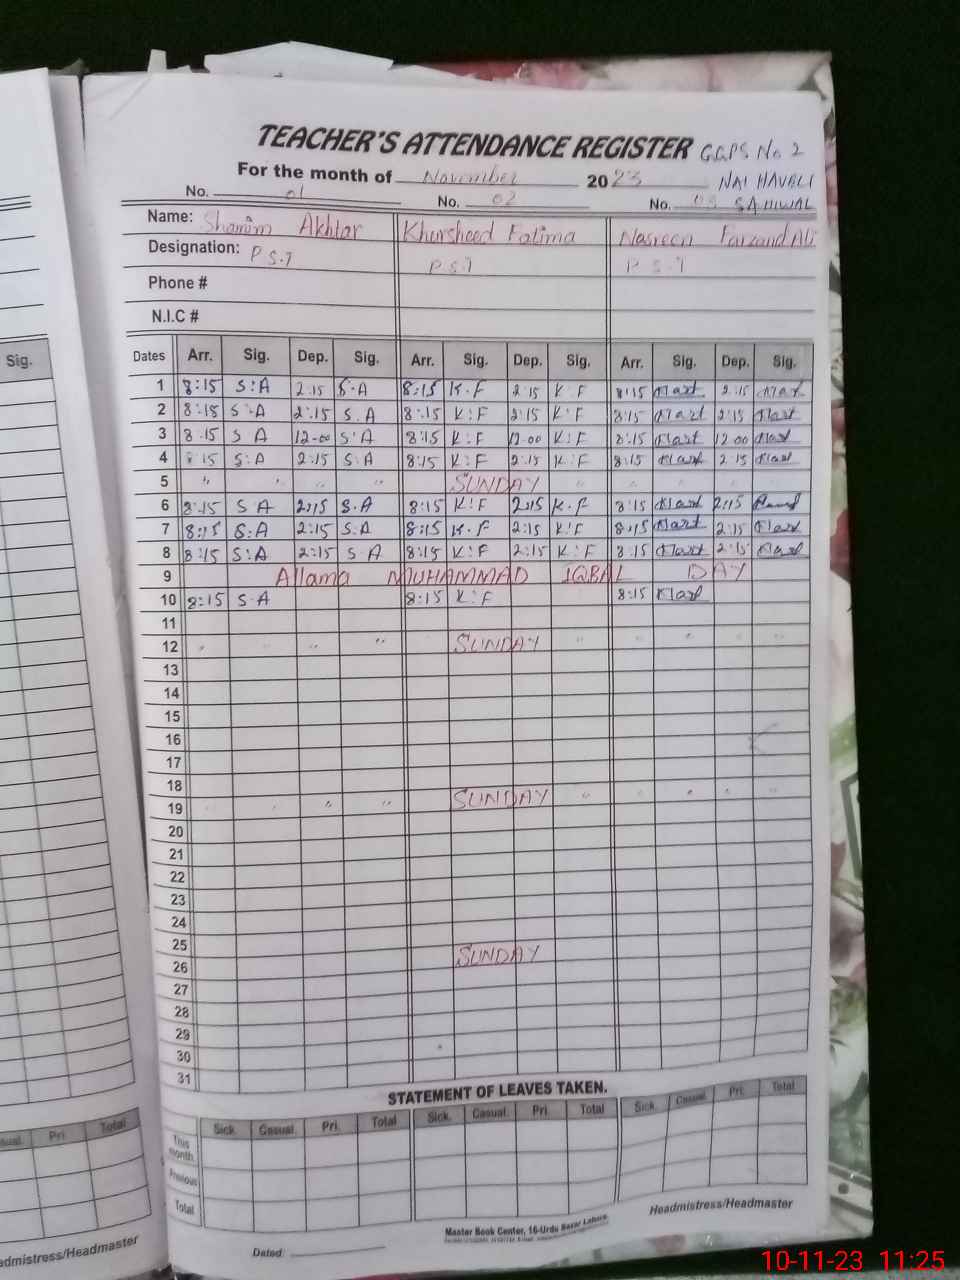 TEACHER'S ATTENDANCE REGISTER GGPS No 2
For the month of November 2023 NAI HAVALI
No. 01 No. 02 No. 03 SAHIWAL
Name: Shamim Akhtar Khursheed Fatima Nasreen Farzand Ali
Designation: P.S.T P.S.T P.S.T
Phone #
N.I.C #
Sig.
Dates Arr. Sig. Dep. Sig. Arr. Sig. Dep. Sig. Arr. Sig. Dep. Sig.
1 8:15 S:A 2:15 S.A 8:15 K.F 2:15 K:F 8:15 2:15
2 8:15 S.A 2:15 S.A 8:15 K:F 2:15 K:F 8:15 2:15
3 8:15 S A 12-00 S A 8:15 K:F 12.00 K:F 8:15 12 00
4 8:15 S:A 2:15 S:A 8:15 K:F 2:15 K:F 8:15 2:15
5 " " " " SUNDAY " " " " "
6 8:15 S A 2:15 S.A 8:15 K!F 2:15 K.F 8:15 2:15
7 8:15 S:A 2:15 S:A 8:15 K.F 2:15 K!F 8:15 2:15
8 8:15 S:A 2:15 S A 8:15 K:F 2:15 K:F 8:15 2:15
9 Allama MUHAMMAD IQBAL DAY
10 8:15 S.A 8:15 K:F 8:15
11
12 " " " " SUNDAY " " " " "
13
14
15
16
17
18
19 " " " " SUNDAY " " " " "
20
21
22
23
24
25
26 SUNDAY
27
28
29
30
31
STATEMENT OF LEAVES TAKEN.
Sick. Casual. Pri. Total Sick. Casual. Pri. Total Sick. Casual. Pri. Total
This month.
Previous
Total
Casual. Pri. Total
Headmistress/Headmaster
Headmistress/Headmaster
Master Book Center, 16-Urdu Bazar Lahore.
Dated:
10-11-23 11:25